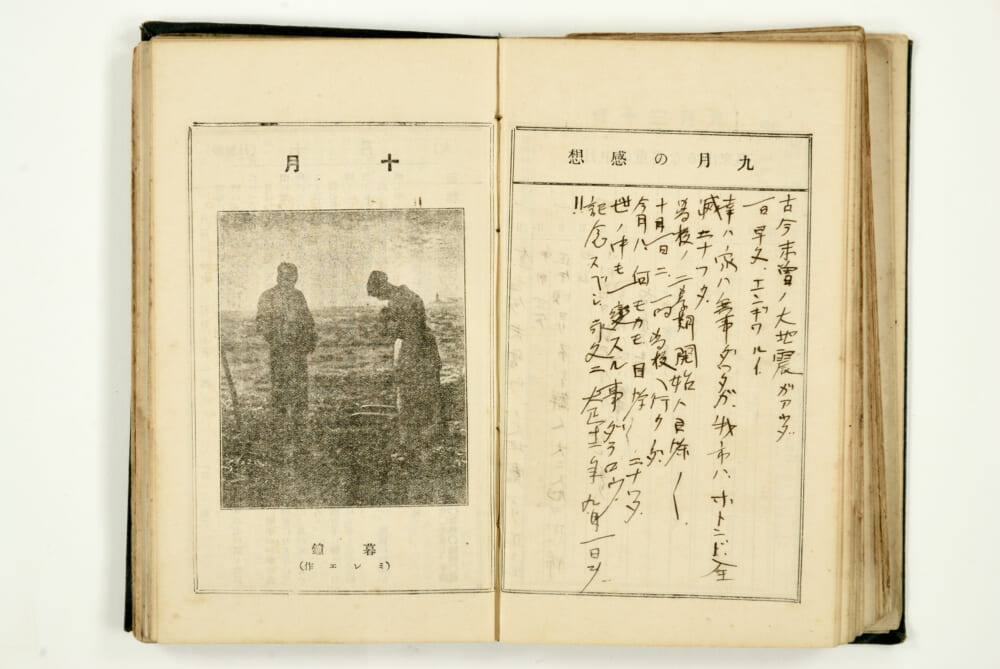 九月の感想
古今未曾ノ大地震ガアツタ
一日早々、エンギワルイ
幸ハ家ハ無事ダツタガ、我市ハ、ホトンド全
滅ニナツタ。
学校ノ二学期開始ハ目茶〱
十月一日ニ一回学校ヘ行ク
今月ハ何モカモ目茶〱ニナツタ
世ノ中モ一変スル事ダラロウ
記念スベシ永久ニ大正十二年九月一日ヲ
!!
十月
暮鐘
(ミレエ作)